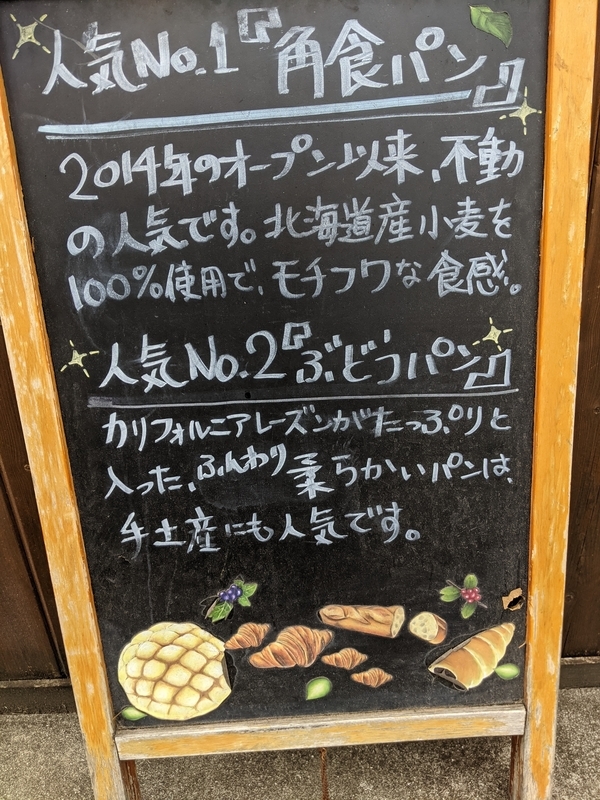 人気No.1『角食パン』
2014年のオープン以来、不動
の人気です。北海道産小麦を
100%使用で、モチフワな食感。
人気No.2『ぶどうパン』
カリフォルニアレーズンがたっぷりと
入った、ふんわり柔らかいパンは、
手土産にも人気です。